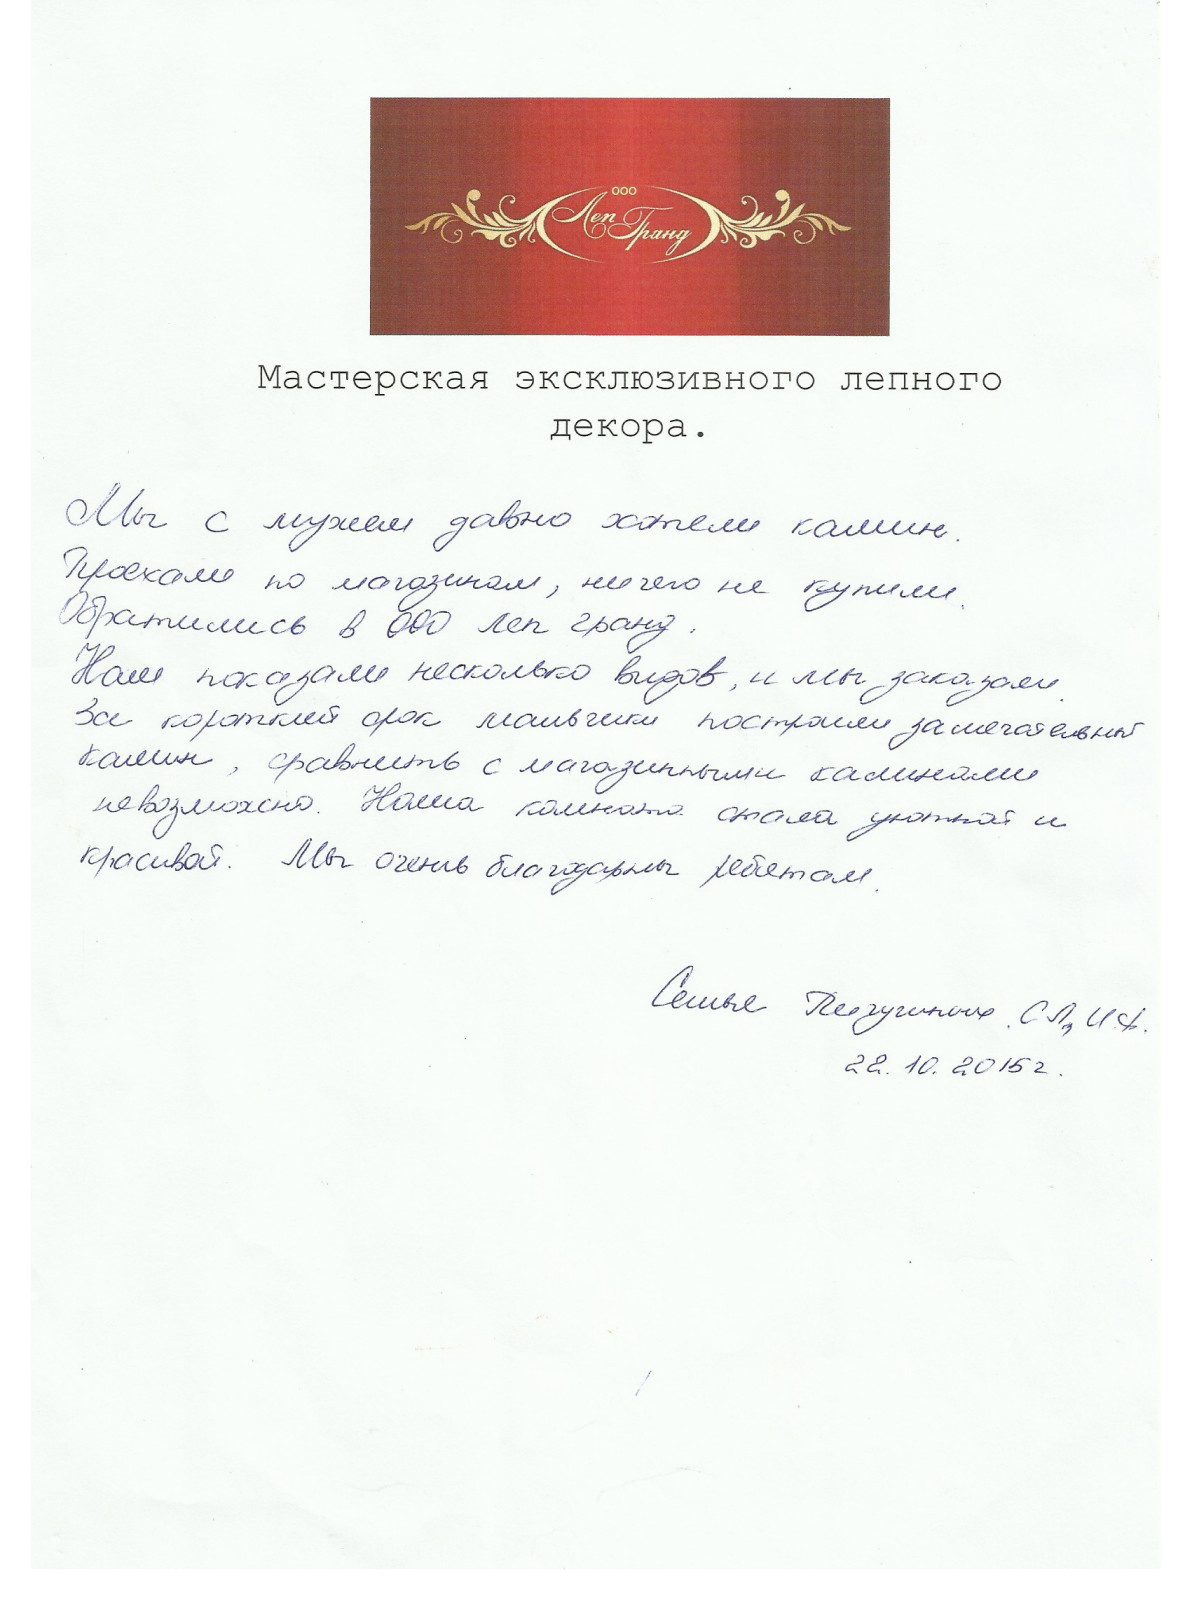 ООО
Леп Гранд
Мастерская эксклюзивного лепного
декора.
Мы с мужем давно хотели камин.
Проехали по магазинам, ничего не купили.
Обратились в ООО Леп гранд.
Нам показали несколько видов, и мы заказали.
За короткий срок мальчики построили замечательный
камин, сравнить с магазинными каминами
невозможно. Наша комната стала уютной и
красивой. Мы очень благодарны ребятам.
Семья С.Л, И.Ф.
22.10.2015г.